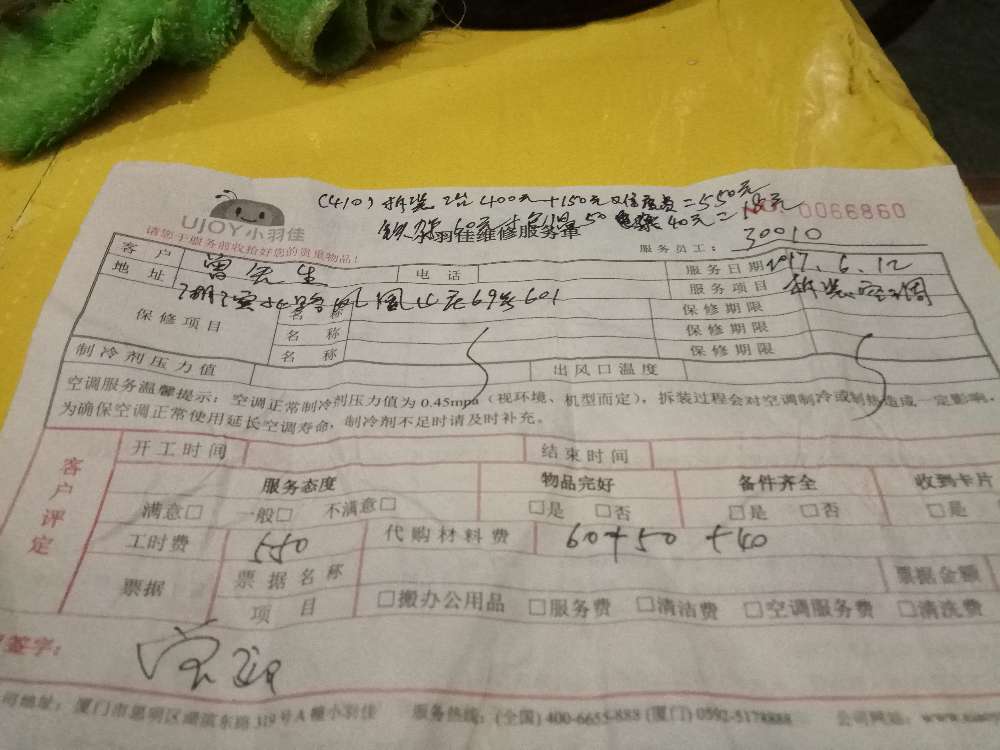 (410) 拆装2台 400元+150元 =550元
UJOY小羽佳 60元 50 40元= 0066860
小羽佳维修服务单
请您于服务前收拾好您的贵重物品!
服务员工: 30010
客户 曾先生 电话 服务日期 2017.6.12
地址 69号601 服务项目 拆装空调
保修项目 名称 保修期限
名称 保修期限
名称 保修期限
制冷剂压力值 出风口温度
空调服务温馨提示:空调正常制冷剂压力值为0.45mpa(视环境、机型而定),拆装过程会对空调制冷或制热造成一定影响,
为确保空调正常使用延长空调寿命,制冷剂不足时请及时补充。
客户评定
开工时间 结束时间
服务态度 物品完好 备件齐全 收到卡片
满意□ 一般□ 不满意□ □是 □否 □是 □否 □是
工时费 550 代购材料费 60+50+40
票据 票据名称 票据金额
项目 □搬办公用品 □服务费 □清洁费 □空调服务费 □清洗费
签字:
司地址:厦门市思明区湖滨东路319号A幢小羽佳 服务热线:(全国)400-6655-888 (厦门)0592-5178888 公司网站: